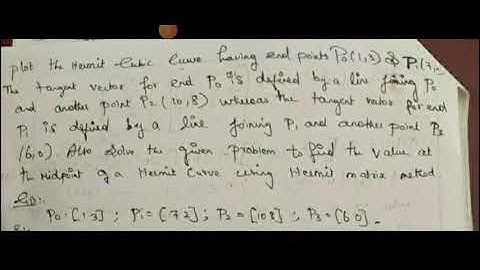 plot the Hermit Cubic Curve having end points P0 (1,3) & P1(7,
The tangent vector for end P0 is defined by a line joining P0
and another point P2 (10,8) whereas the tangent vector for end
P1 is defined by a line joining P1 and another point P3
(6,0). Also solve the given problem to find the value at
the midpoint of a Hermit Curve using Hermit matrix method
P0 = [1 3] ; P1 = [7 2] ; P2 = [10 8] ; P3 = [6 0] .